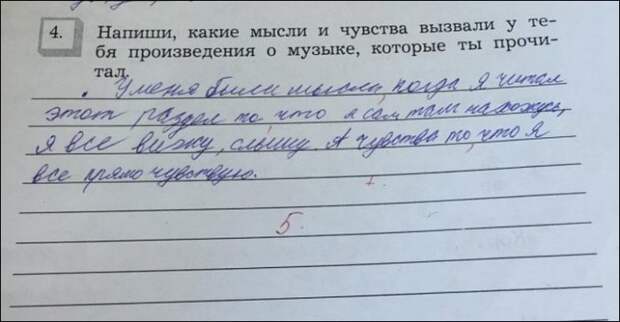 4. Напиши, какие мысли и чувства вызвали у те-
бя произведения о музыке, которые ты прочи-
тал.
У меня были мысли, когда я читал
этот раздел то, что я сам там нахожусь,
я все вижу, слышу. А чувства то, что я
все прямо чувствую.
5